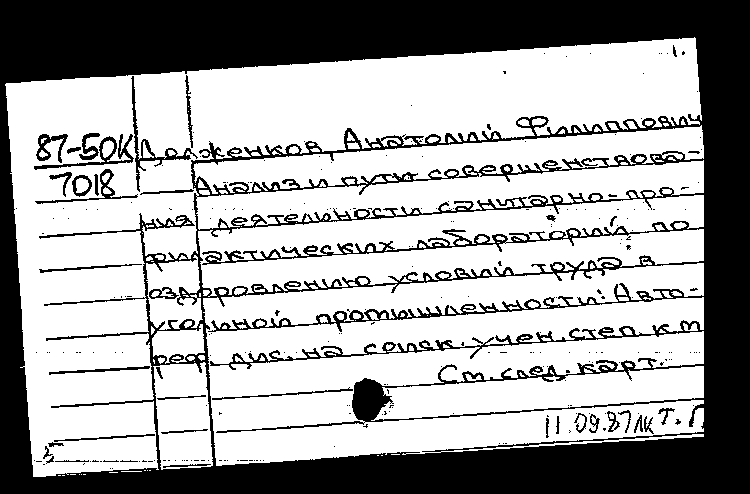 1.
87-50К Долженков, Анатолий Филиппович
7018 Анализ и пути совершенствова-
ния деятельности санитарно-про-
филактических лабораторий по
оздоровлению условий труда в
угольной промышленности: Авто-
реф. дис. на соиск. учен. степ. к.т
См. след. карт.
11.09.87 лк Т. П
5